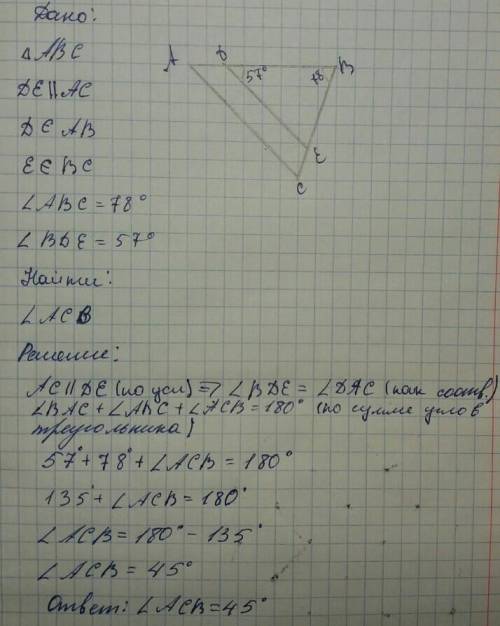 Дано:
△ABC
DE||AC
D∈AB
E∈BC
∠ABC = 78°
∠BDE = 57°
Найти:
∠ACB
Решение:
AC||DE (по усл) => ∠BDE = ∠DAC (как соотв.)
∠BAC + ∠ABC + ∠ACB = 180° (по сумме углов
треугольника)
57° + 78° + ∠ACB = 180°
135° + ∠ACB = 180°
∠ACB = 180° - 135°
∠ACB = 45°
Ответ: ∠ACB = 45°
A D B
57° 78
E
C